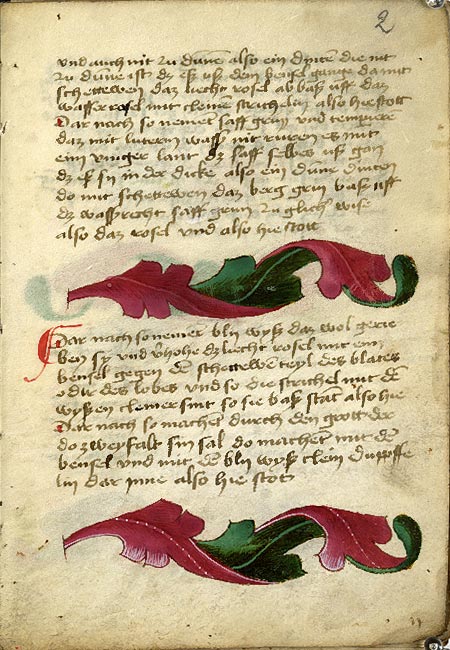 2
und auch nit zu dünn also ein dinten die nit
zu dünne ist dz es uß dem bensel gange da mit
schettewen daz liecht rosel ab baß uff daz
wasser rosel mit cleine strichelin also hie stott
Dar nach so nemet saff grun und tempere
daz mit luterm wasser nit ruren es mit
eim vinger lant dz saff selbes uß gan
dz es sy in der dicke also ein dunne dinten
do mit schettewen daz berg grun baß uff
dz wasserecht saff grun zu glicher wise
also daz rosel und also hie stott
Dar nach so nemet bly wyß daz wol gerie
ben sy und dz liecht rosel mit eim
bensel gegen den schettewen teyl des blates
odir des lobes und so die strichel mit dem
wyssen cleiner sint so sie baß stat also hie
Dar nach so machet durch den grott der
do zweyfalt sin sal do machet mit dem
bensel und mit dem bly wyß clein dupffe
lin dar inne also hie stott